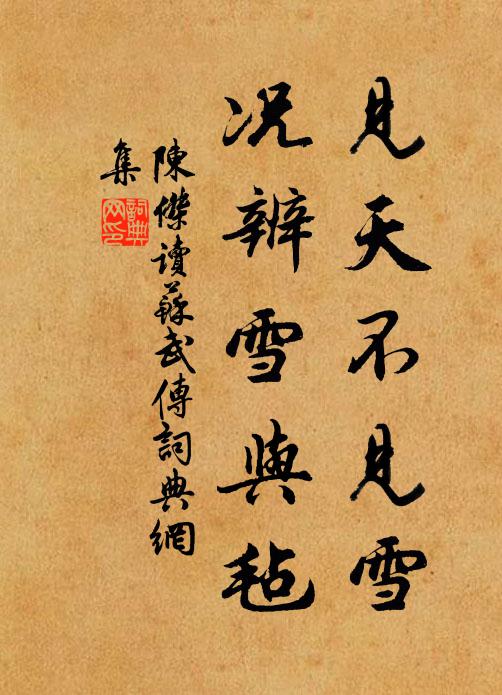 見天不見雪
况辨雪與毡
陳傑讀蘇武傳詞典網
集
詞典
网印